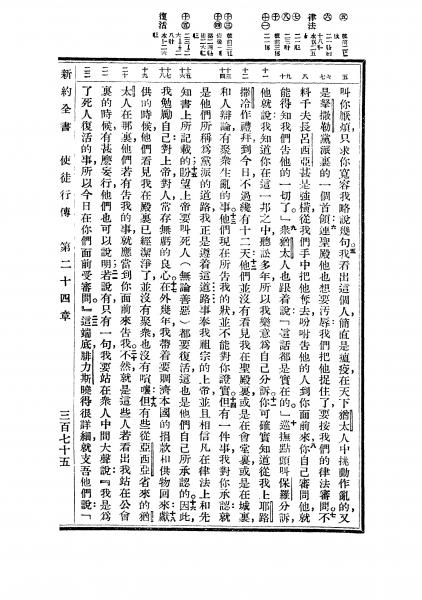 五 叫你厭煩只求你寬容我略說幾句我看出這個人簡直是瘟疫在天下猶太人中挑動作亂的又
六 七 是拏撒勒黨派裏的一個首領連聖殿他也想要汚辱我們把他捉住了要按我們的律法審問不
八 料千夫長呂西亞甚是強橫從我們手中把他奪去吩咐告他的人到你面前來你自己審問他就
九 十 能得知我們告他的一切了」衆猶太人也跟着說「這話都是實在的」巡撫點頭叫保羅分訴
十一 他就說我知道你在這一邦之中聽訟多年所以我樂意爲自己分訴你可確實知道從我上耶路
十二 撒冷作禮拜到今日不過纔有十二天他們並沒有看見我在聖殿裏或是在會堂裏或是在城裏
十三 十四 和人辯論有聚衆生亂的事他們現在所告我的狀並不能對你證實但有一件事我對你承認就
是他們所稱爲黨派的道路我正是遵着這道路事奉我祖宗的上帝並且相信凡在律法上和先
十五 十六 知書上所記載的盼望上帝要叫死人(無論善惡)都要復活這也是他們自己所承認的因此
十七 十八 我勉勵自己對上帝對人常存無虧的良心在外幾年我帶着要賙濟本國的捐款和供物回來獻
十九 供的時候他們看見我在殿裏已經潔淨了並沒有聚衆也沒有喧嚷但有些從亞西亞省來的猶
二十 太人在那裏他們若有告我的事就應當到你面前來告我不然就是這些人若看出我站在公會
二一 裏的時候有甚麼妄行他們也可以說明若說有只有一句我要站在衆人中間大聲說『我是爲
二二 了死人復活的事所以今日在你們面前受審問』」這端底腓力斯曉得很詳細就支吾他們說「
新約全書 使徒行傳 第二十四章 三百七十五
律法
復活